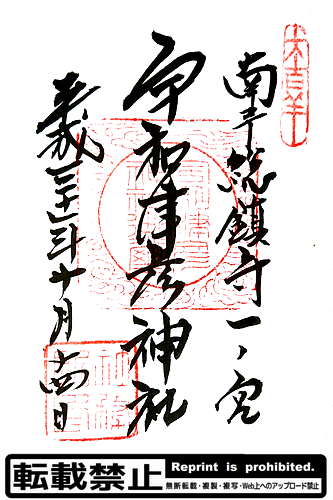 大吉羊
南予総鎮守一ノ宮
宇和津彦神社
平成二十三年十月十四日
転載禁止
Reprint is prohibited.
無断転載・複製・複写・Web上へのアップロード禁止